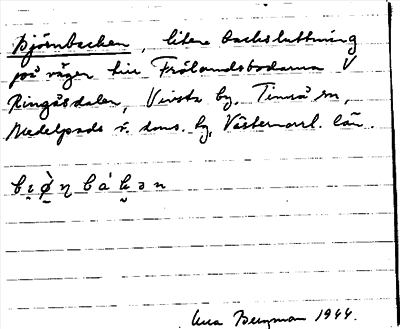 Björnbacken, liten backsluttning
på vägen till Frölandsbodarna V
Ringåsdalen, Vivsta by, Timrå sn,
Medelpads v. doms. hy, Västernorrl. län.
Bergman 1944.